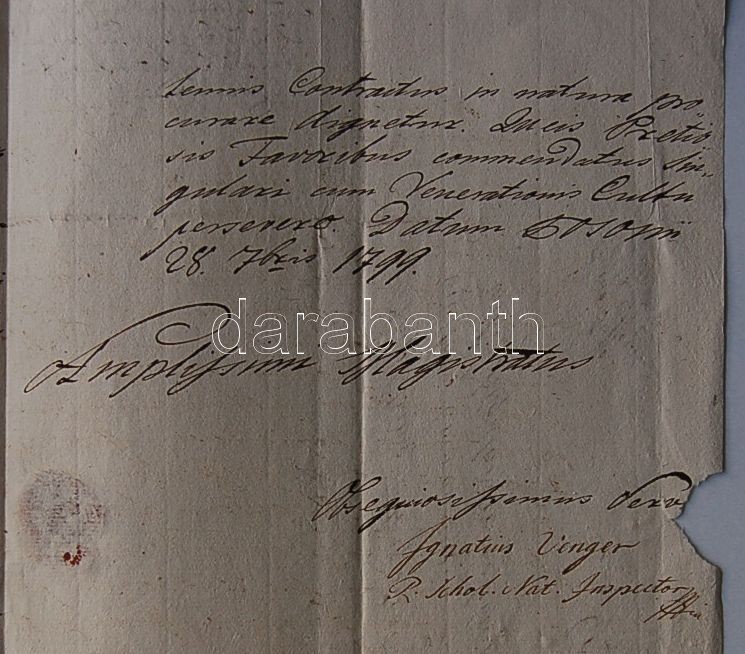 tennis Contractus in natura pro
curare dignetur. Queis Pretio
sis Favoribus commendatus Sin„
gulari cum Venerationis Cultu
persevero. Datum Posonii
28. 7bris 1799.
darabanth
Amplissimi Magistratus
Obsequiosissimus Serv
Ignatius Venger
R. Schol. Nat. Inspector